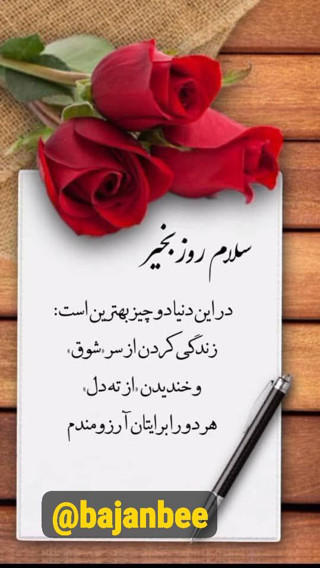 سلام روز بخیر
در این دنیا دو چیز بهترین است:
زندگی کردن از سر «شوق»
و خندیدن «از ته دل»
هر دو را برایتان آرزومندم
@bajanbee